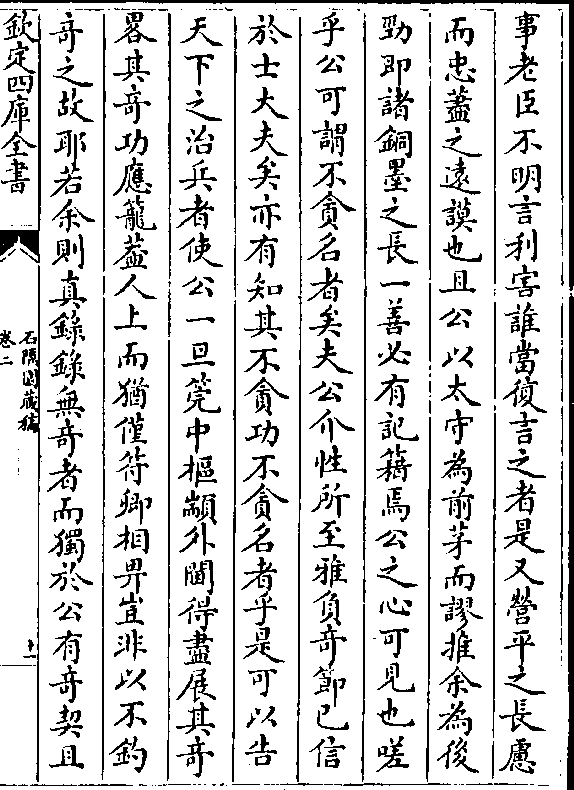 事老臣不明言利害誰當復言之者是又營平之長慮
而忠藎之遠謨也且公以太守為前茅而謬推余為後
勁即諸銅墨之長一善必有記籍焉公之心可見也嗟
乎公可謂不貪名者矣夫公介性所至雅負奇節已信
於士大夫矣亦有知其不貪功不貪名者乎是可以告
天下之治兵者使公一旦筦中樞顓外閫得盡展其奇
畧其奇功應籠葢人上而猶僅符卿相畀豈非以不釣
奇之故耶若余則真錄錄無奇者而獨於公有奇契且
欽定四庫全書
石隱園藏稿
卷二
十一